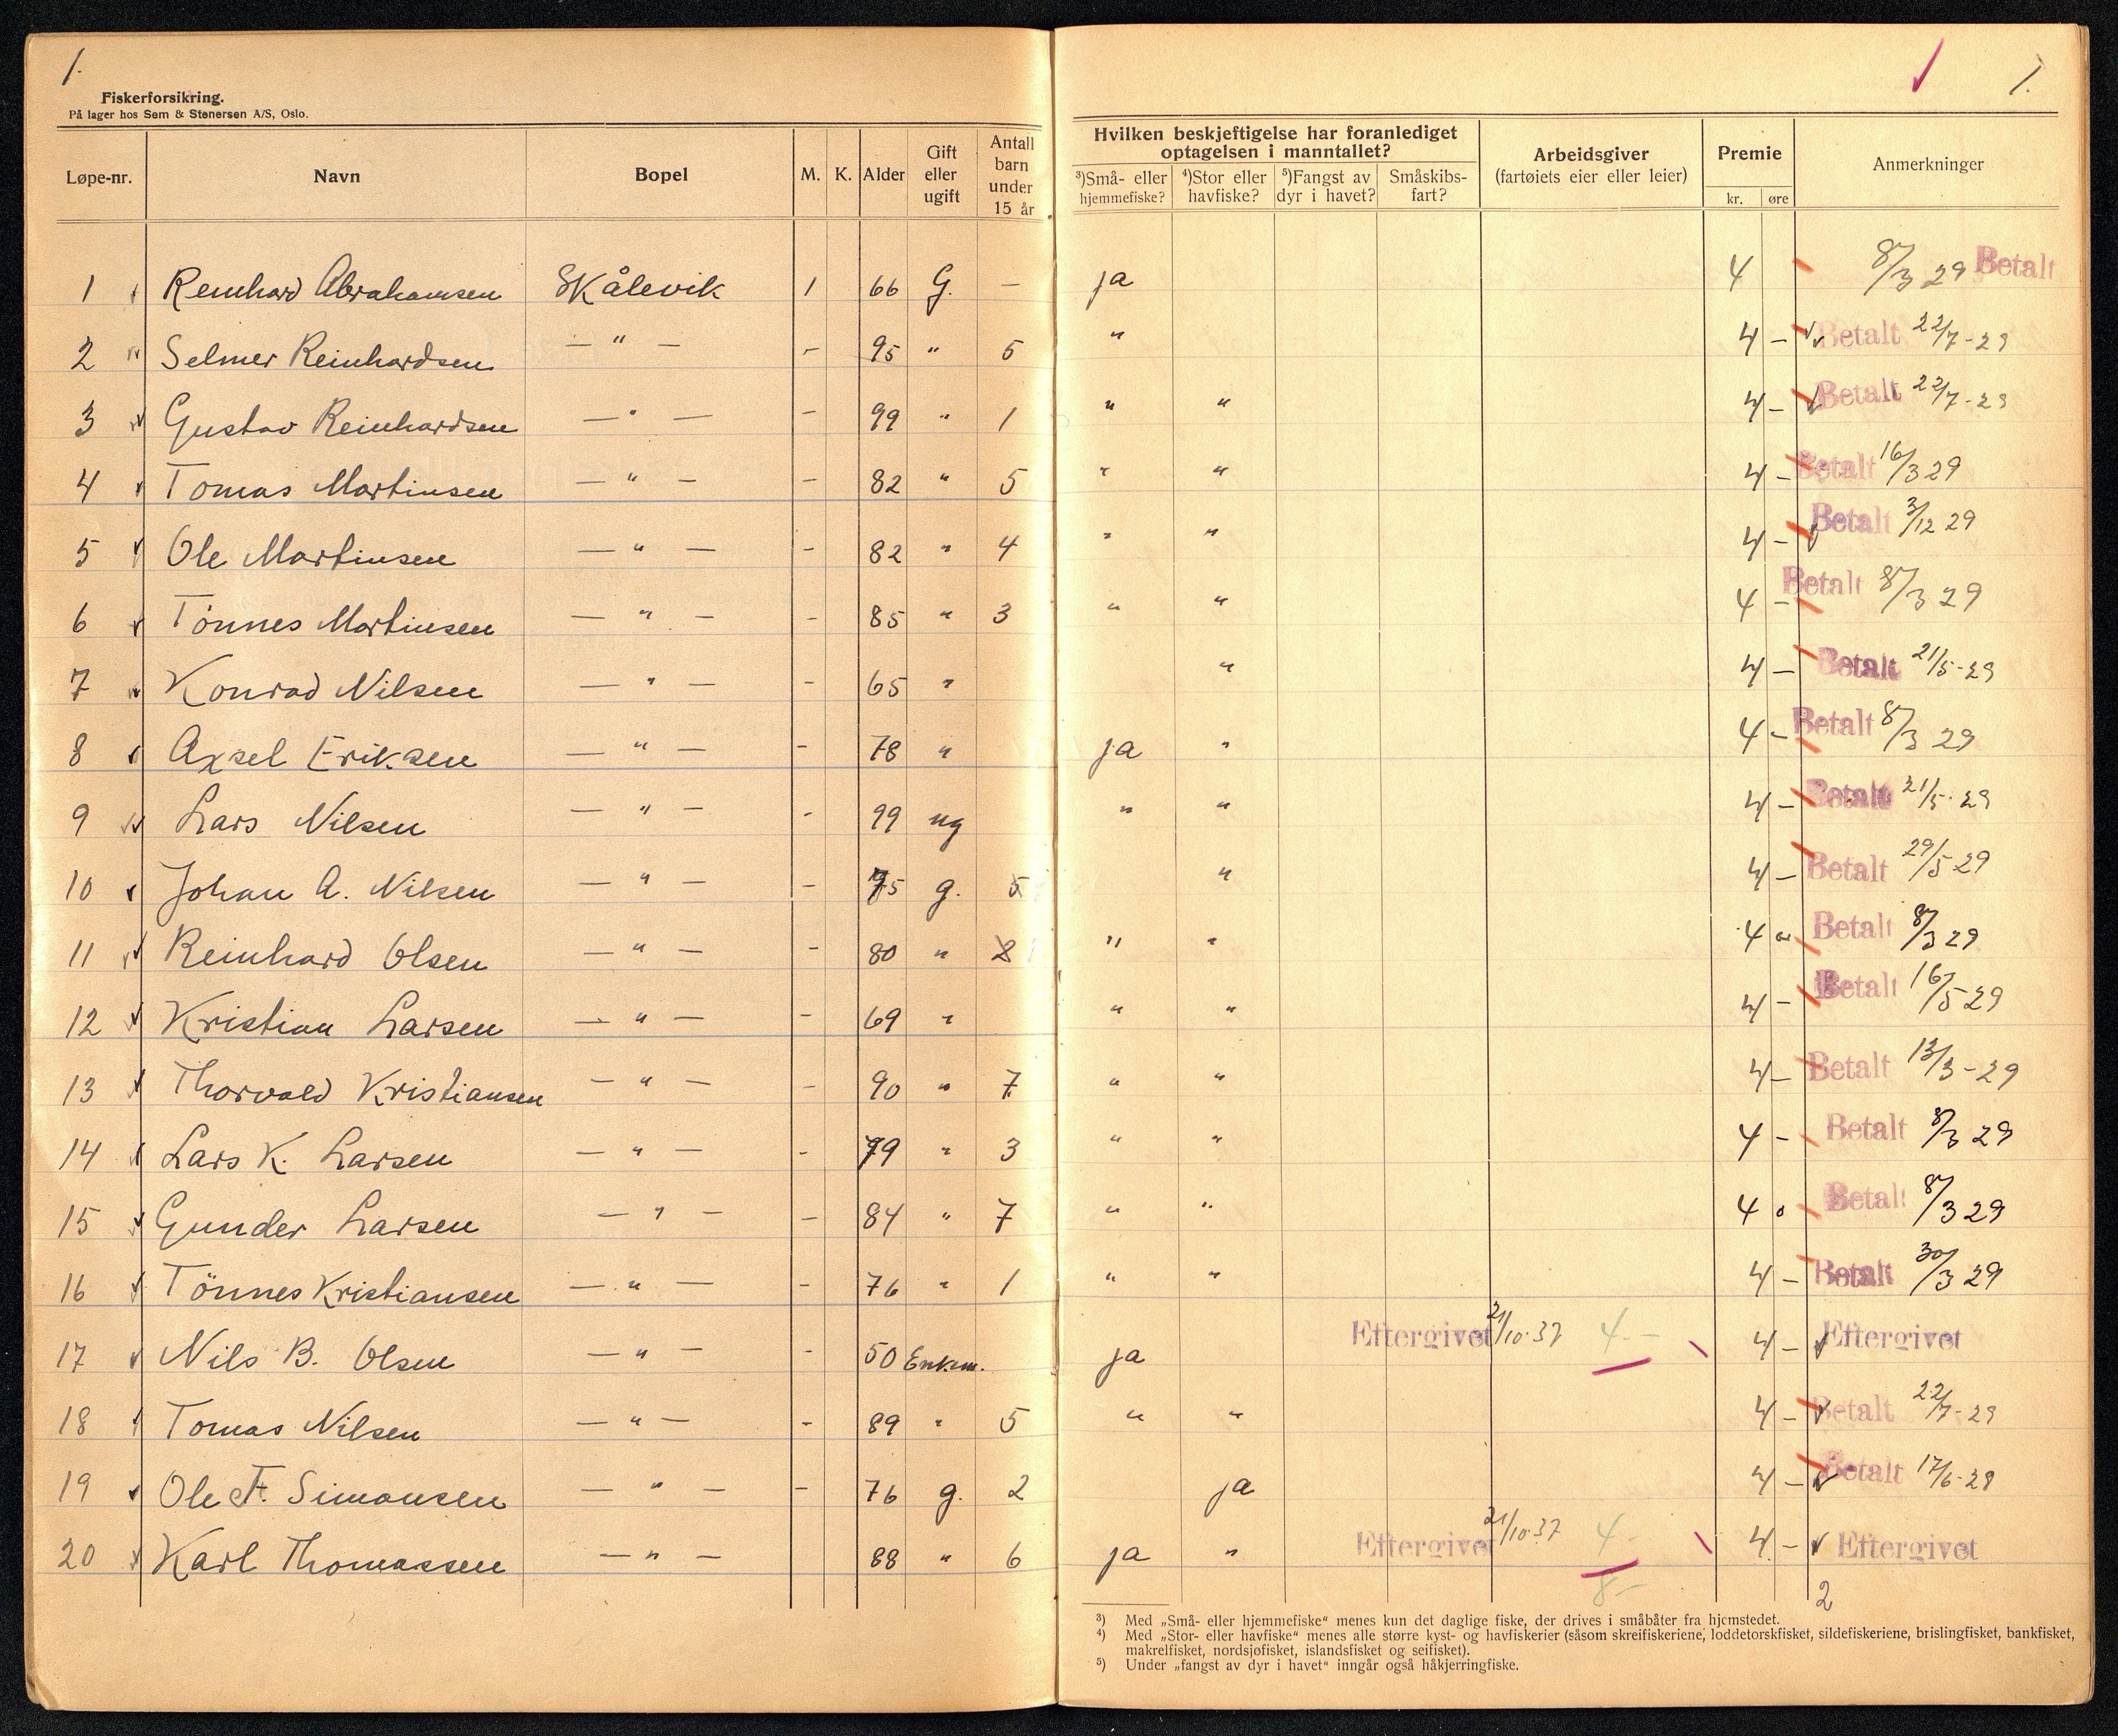 1.
1.
Fiskerforsikring.
På lager hos Sem & Stenersen A/S, Oslo.
Løpe-nr. Navn Bopel M. K. Alder Gift eller ugift Antall barn under 15 år
Hvilken beskjeftigelse har foranlediget optagelsen i manntallet?
³)Små- eller hjemmefiske? ⁴)Stor eller havfiske? ⁵)Fangst av dyr i havet? Småskibsfart?
Arbeidsgiver (fartøiets eier eller leier) Premie kr. øre Anmerkninger
1 Reinhard Abrahamsen Skålevik 1 66 G. — ja 4 8/3 29 Betalt
2 Selmer Reinhardsen — " — - 95 " 5 " 4 - Betalt 22/7-29
3 Gustav Reinhardsen — " — - 99 " 1 " " 4 - Betalt 22/7-29
4 Tomas Martinsen — " — - 82 " 5 " " 4 - Betalt 16/3 29
5 Ole Martinsen — " — - 82 " 4 " " 4 - Betalt 3/12 29
6 Tönnes Martinsen — " — - 85 " 3 " " 4 - Betalt 8/3 29
7 Konrad Nilsen — " — - 65 " " 4 - Betalt 21/5-29
8 Axsel Eriksen — " — - 78 " ja " 4 - Betalt 8/3 29
9 Lars Nilsen — " — - 99 ug " " 4 - Betalt 21/5-29
10 Johan A. Nilsen — " — - 75 g. 5 " 4 - Betalt 29/5 29
11 Reinhard Olsen — " — - 80 " " " 4 " Betalt 8/3 29
12 Kristian Larsen — " — - 69 " " " 4 - Betalt 16/5 29
13 Thorvald Kristiansen — " — - 90 " 7 " " 4 - Betalt 13/3-29
14 Lars K. Larsen — " — - 79 " 3 " " 4 - Betalt 8/3 29
15 Gunder Larsen — " — - 84 " 7 " " 4 0 Betalt 8/3 29
16 Tönnes Kristiansen — " — - 76 " 1 " " 4 - Betalt 30/3 29
17 Nils B. Olsen — " — - 50 Enkem. ja Eftergivet 21/10-37 4.- 4 - Eftergivet
18 Tomas Nilsen — " — - 89 " 5 " " 4 - Betalt 22/7-29
19 Ole F. Simonsen — " — - 76 g. 2 ja 4 - Betalt 17/6-29
20 Karl Thomassen — " — - 88 " 6 ja " Eftergivet 21/10-37 4.- 4 - Eftergivet
8- 2
³) Med „Små- eller hjemmefiske" menes kun det daglige fiske, der drives i småbåter fra hjemstedet.
⁴) Med „Stor- eller havfiske" menes alle større kyst- og havfiskerier (såsom skreifiskeriene, loddetorskfisket, sildefiskeriene, brislingfisket, bankfisket,
makrelfisket, nordsjøfisket, islandsfisket og seifisket).
⁵) Under „fangst av dyr i havet" inngår også håkjerringfiske.